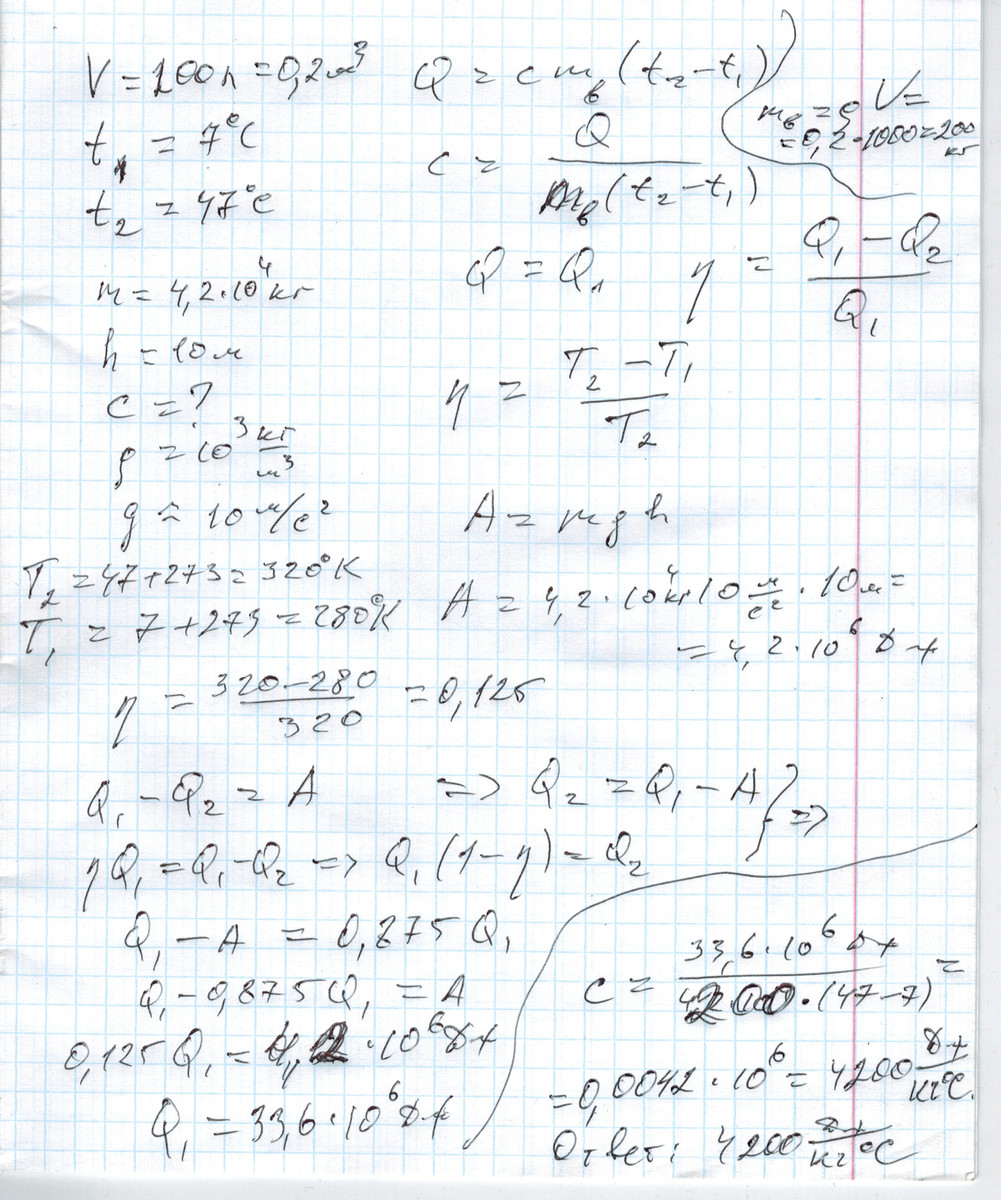 V = 200л = 0,2м³
t₁ = 7°C
t₂ = 47°C
m = 4,2·10⁴ кг
h = 10м
c = ?
ρ = 10³ кг/м³
g ≈ 10 м/с²
T₂ = 47+273 = 320°K
T₁ = 7+273 = 280°K
Q = c mв (t₂-t₁)
mв = ρ V =
= 0,2·1000 = 200 кг
c = Q / mв(t₂-t₁)
Q = Q₁ η = (Q₁ - Q₂) / Q₁
η = (T₂ - T₁) / T₂
A = mgh
A = 4,2·10⁴ кг 10 м/с² · 10м =
= 4,2·10⁶ Дж
η = (320-280) / 320 = 0,125
Q₁ - Q₂ = A => Q₂ = Q₁ - A } =>
ηQ₁ = Q₁-Q₂ => Q₁ (1-η) = Q₂
Q₁ - A = 0,875 Q₁
Q₁ - 0,875 Q₁ = A
0,125 Q₁ = 4,2·10⁶ Дж
Q₁ = 33,6·10⁶ Дж
c = 33,6·10⁶ Дж / 200·(47-7) =
= 0,0042·10⁶ = 4200 Дж/кг°C.
Ответ: 4200 Дж/кг°C